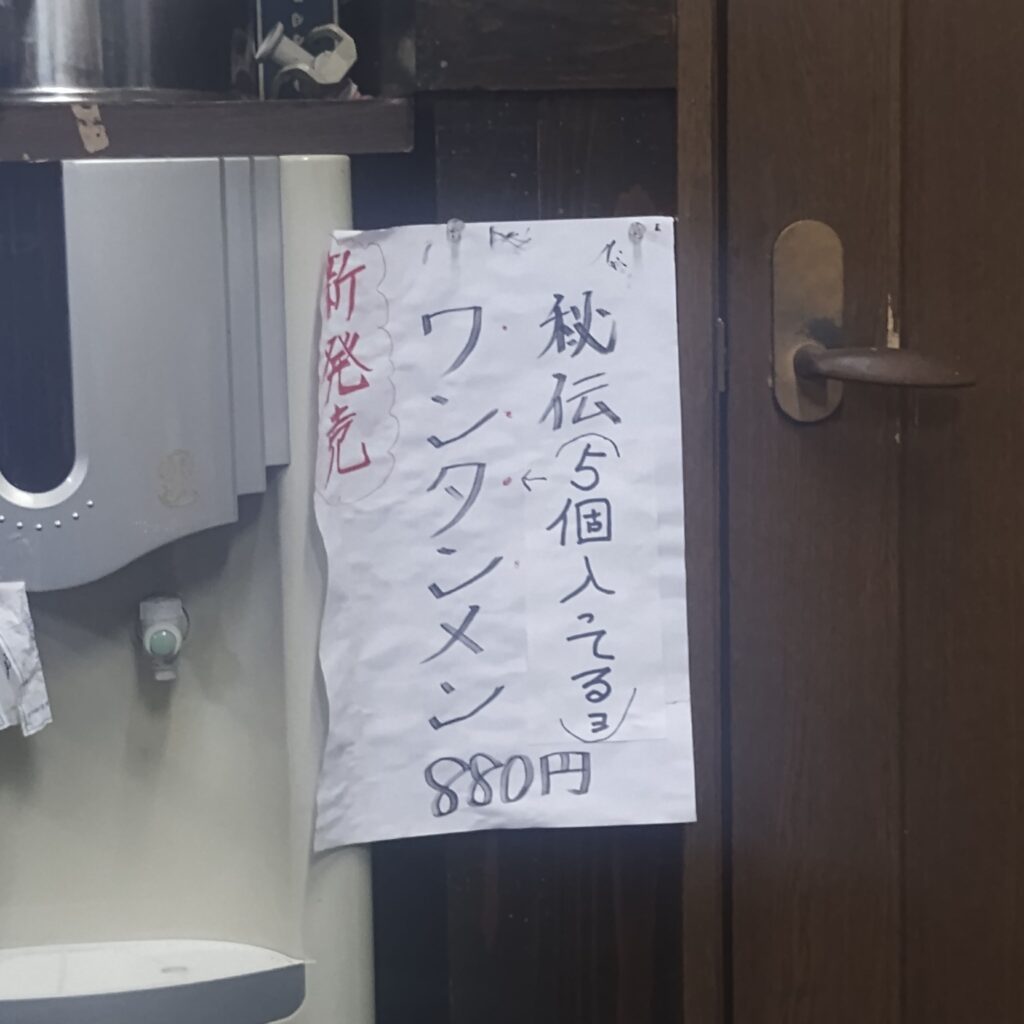 秘伝
(5個入ってるヨ)
←
ワンタンメン
880円
新発売